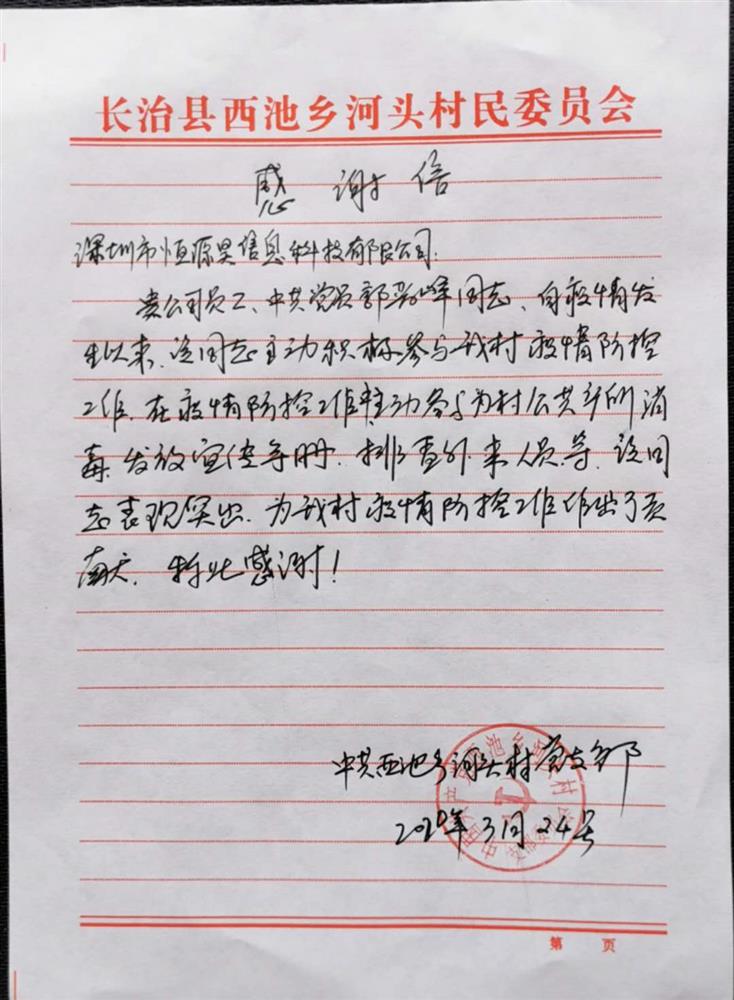 长治县西池乡河头村民委员会
感谢信
深圳市恒源昊信息科技有限公司:
贵公司员工、中共党员郭兴峰同志、自疫情发
生以来,该同志主动积极参与我村疫情防控
工作,在疫情防控工作主动参与为村公共厕所消
毒,发放宣传手册,排查外来人员等,该同
志表现突出,为我村疫情防控工作作出了贡
献,特此感谢!
中共西池乡河头村党支部
2020年3月24号
第 页